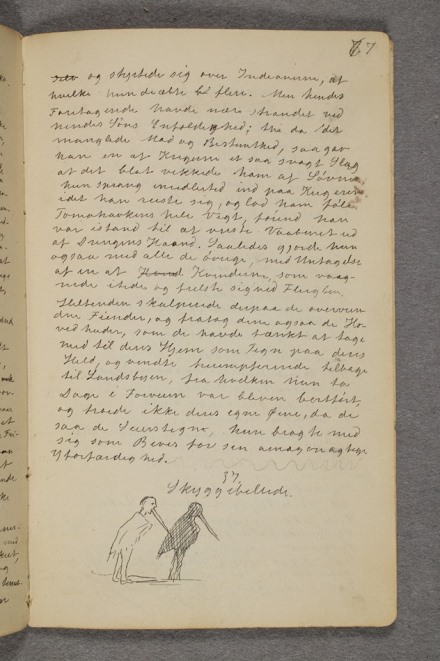 77
og styrtede sig over Indianerne, af
hvilke hun dræbte flere. Men hendes
Foretagende havde nær strandet ved
hendes Søns Enfoldighed; thi da det
manglede Mod og Bestemthed, saa gav
han en af Krigerne et saa svagt Slag
at det blot vækkede ham af Søvne
hun sprang imidlertid ind paa Krigeren
idet han reiste sig, og lod ham føle
Tomahavkens hele Vægt, førend han
var istand til at vriste Vaabenet ud
af Drengens Haand. Saaledes gjorde hun
ogsaa med alle de øvrige, med Undtagelse
af en af Kvinderne, som vaag-
nede itide og frelste sig ved Flugten.
Heltinden skalperede derpaa de overvun
dne Fiender, og fratog dem ogsaa de Ho-
veder, som de havde tænkt at tage
med til deres Hjem som Tegn paa deres
Held, og vendte triumpferende tilbage
til Landsbyen, fra hvilken hun to
Dage i Forveien var bleven bortført,
og troede ikke deres egne Øine, da de
saa de Seierstegn, hun bragte med
sig som Beviis for sen
37
Skyggebillede.